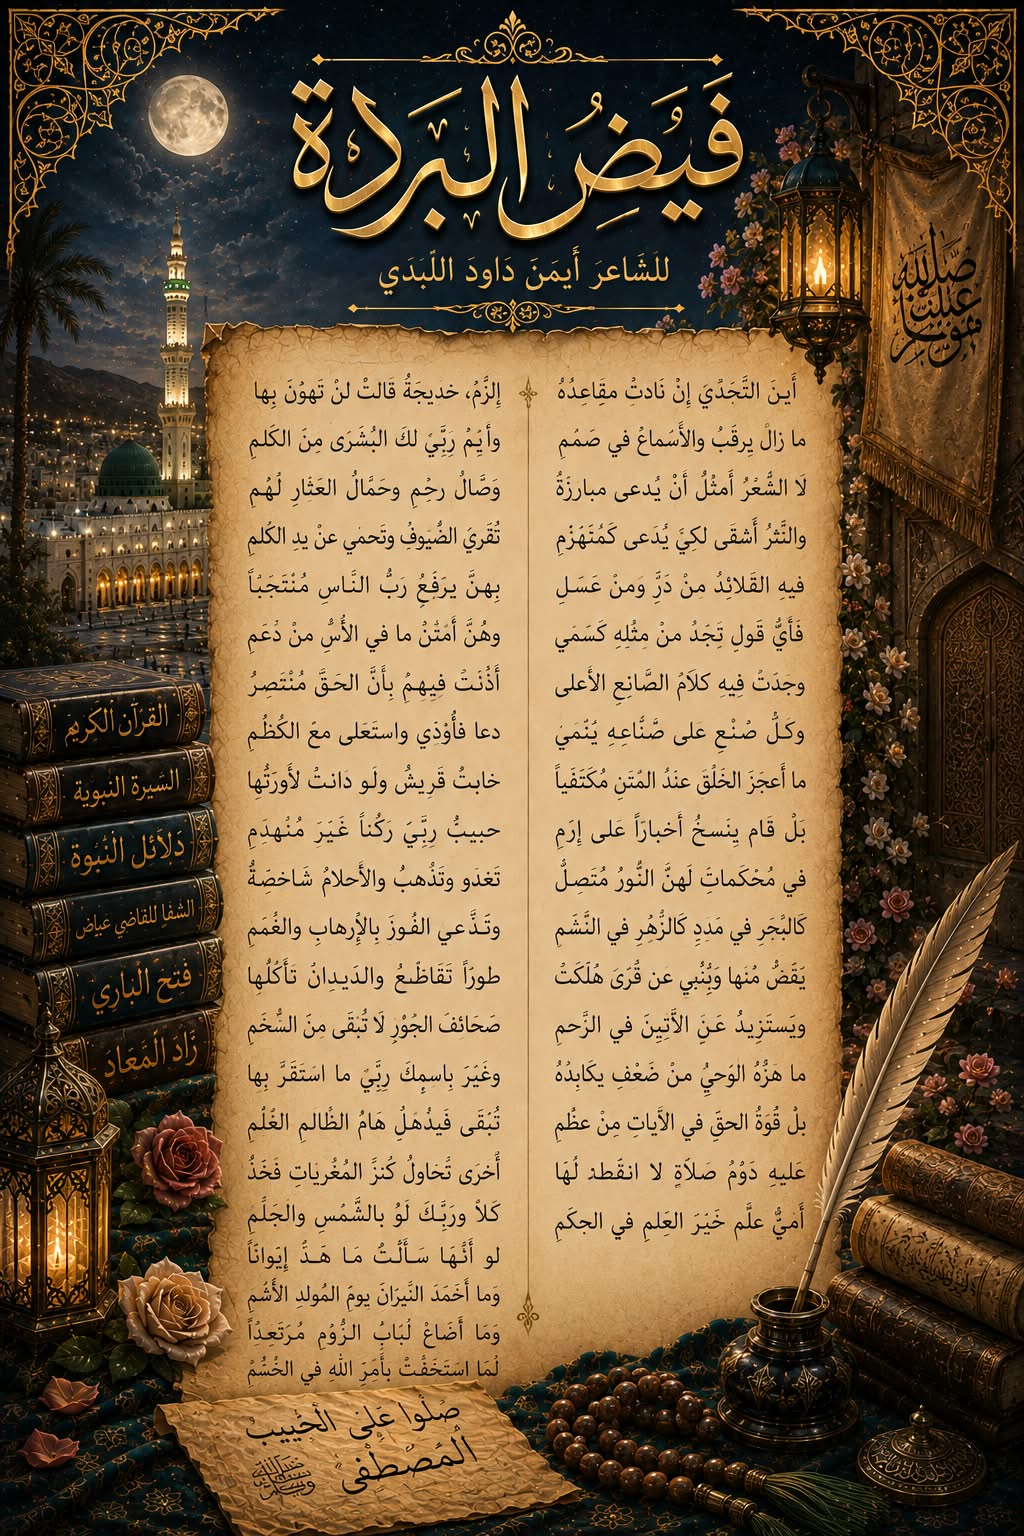 فَيْضُ البَردة
للشَاعرَ أَيمَنَ دَاودَ اللّبدَي
أَينَ التَّحَدِّيَ إِنْ نَادتْ مقِاعِدُهُ
ما زالْ يرقَبُ والأَسَماعُ في صَمَم
لَا الشِّعْرُ أَمثْلُ أَنْ يُدعى مبارَزةُ
والنَّثرُ أَشقَى لكِيَ يُدَعى كَمُنَهَزْمِ
فيهِ القَلائِدُ مِنْ دَرَّ وَمنْ عَسَـلِ
فَأَيُّ قَولِ تَجَدُ مـنْ مِثُلِهِ كَسَمَي
وجَدَتْ فِيهِ كلاَمُ الصَّانِعِ الأَعلى
وكَـلُّ صُنْـعِ عَلى صَّنُاعِـهِ يُنْمَيِ
ما أَعجَزَ الخَلْقَ عنْدُ المَتنِ مُكَتَفَياً
بَلْ قَام يِنَسخُ أَخبارَاً عَلى إرَمِ
في مُحْكَماتِ لَهنَّ النُّورُ مُتَصِلُّ
كَالبَّحَرِ في مَدِدِ كَالزُّهْرِ في النَّشَم
يَقَصُّ مُنَها وَيُنْبي عَن قُرَىَ هُلَكَتْ
ويَستَزِيدُ عَـنَ الآتِيـنَ في الرَّحمِ
ما هَزَّهُ الوَحيُ منْ ضَعْفِ يكَابِدُهُ
بلْ قُوَةُ الحقَ في الآياتِ مِنْ عظُمِ
عَليهِ دَوْمُ صَلاَةِ لا انقَطذ لُهَا
أَميُّ علَّم خَيْرَ العَلِمِ في الحِكَمِ
إِلزَمُ، خديجَةُ قَالتْ لنْ تَهوُنَ بِها
وأَيْمُ رَبِّيْ لكَ البُشَرَى مِنَ الكَلمِ
وَصَّالُ رحْمِ وحَمَّالُ العَثارِ لَهُم
تُقَريَ الضُّيوفِ وتَحمَي عنْ يدِ الكُلمِ
بِهنَّ يرَفعُ رَبُّ النَّاسِ مُنْتَجَبْاً
وهُنَّ أَمَتْنُ ما في الأُسُّ منْ دُعَمِ
أَذْنَتْ فِيهِمْ بِأَنَّ الحَقَّ مُنْتَصِرُ
دعا فأُوْذَي واستَعَلى معَ الكُظُمِ
خابتُ قَريشُ ولَو دَانتْ لأَورَتُها
حبيبُّ رِبِّيَ رَكُناً غَـيَرَ مُنْهدَمِ
تَغدَو وتَذْهبُ والأَحلامُ شَاخصَةُ
وتَـدَّعي الفُوزَ بالإرهابِ والغُمَمِ
طورَاً تَقَاطَعُ والدَيدانُ تَأكُلُها
صَحَائفَ الجُوْرِ لَا تُبُقَى مِنَ السُّخَمِ
وغَيَرَ بِاسمِكَ رِبِّيْ ما استَقَرَّ بِها
تُبْقَى فَيَذُهَلُ هَامُ الظَّالمِ الغَلْمِ
أَخرَى تُحَاولُ كَنزَ المُغُريَاتِ فَخَذُ
كَلاَّ ورَبِّـكَ لَوُ بالشَّمُسِ والجَلَّمِ
لو أَنَّهَا سَـأَلْـتُ مَـا هَـذَّ إيَواناً
وَما أَخَمَدَ النَّيرَانَ يومَ المُولدِ الأَشُمِ
وَمَا أَضَاعْ لُبَابُ الرُّوْمِ مُرَتَعِدْاً
لُمَا استَخَفْتْ بأَمَرَ اللهِ في الخُشُمْ
صَلَّى اللهُ
القرآن الكَرِيم
السِّيرة النبوية
دَلاَئل النُبوة
الشفا للقاضي عياض
فتح الباري
زَاد المَعاد
صُلْوا عَلَى الحَبِيبْ
المُصطفى